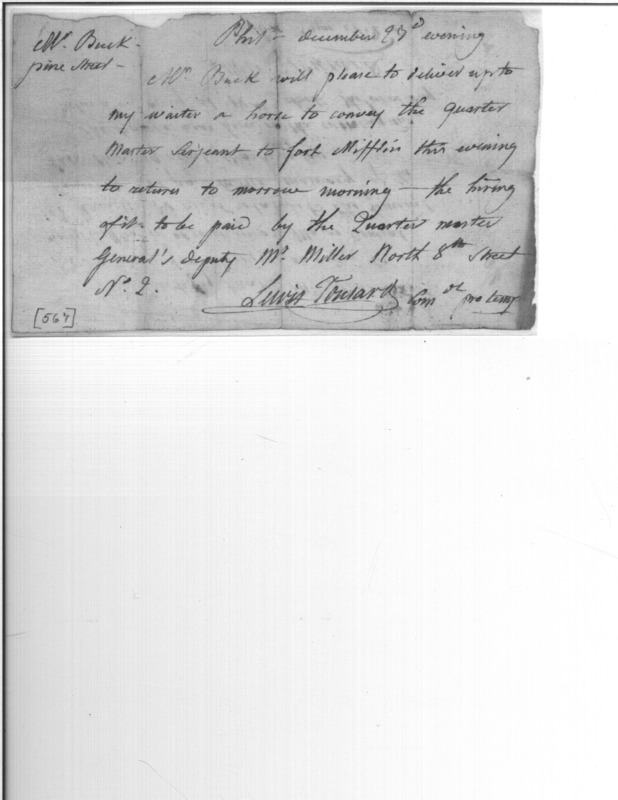 Mr. Buck - Phila - december 23d evening
pine Street -
Mr. Buck will please to deliver up to
my waiter a horse to convey the quarter
Master Sergeant to fort Mifflin this evening
to return to morrow morning - the hiring
of it to be paid by the Quarter master
General's deputy Mr. Miller North 8th Street
No. 2.
Lewis Tousard Com dt pro temp
[567]